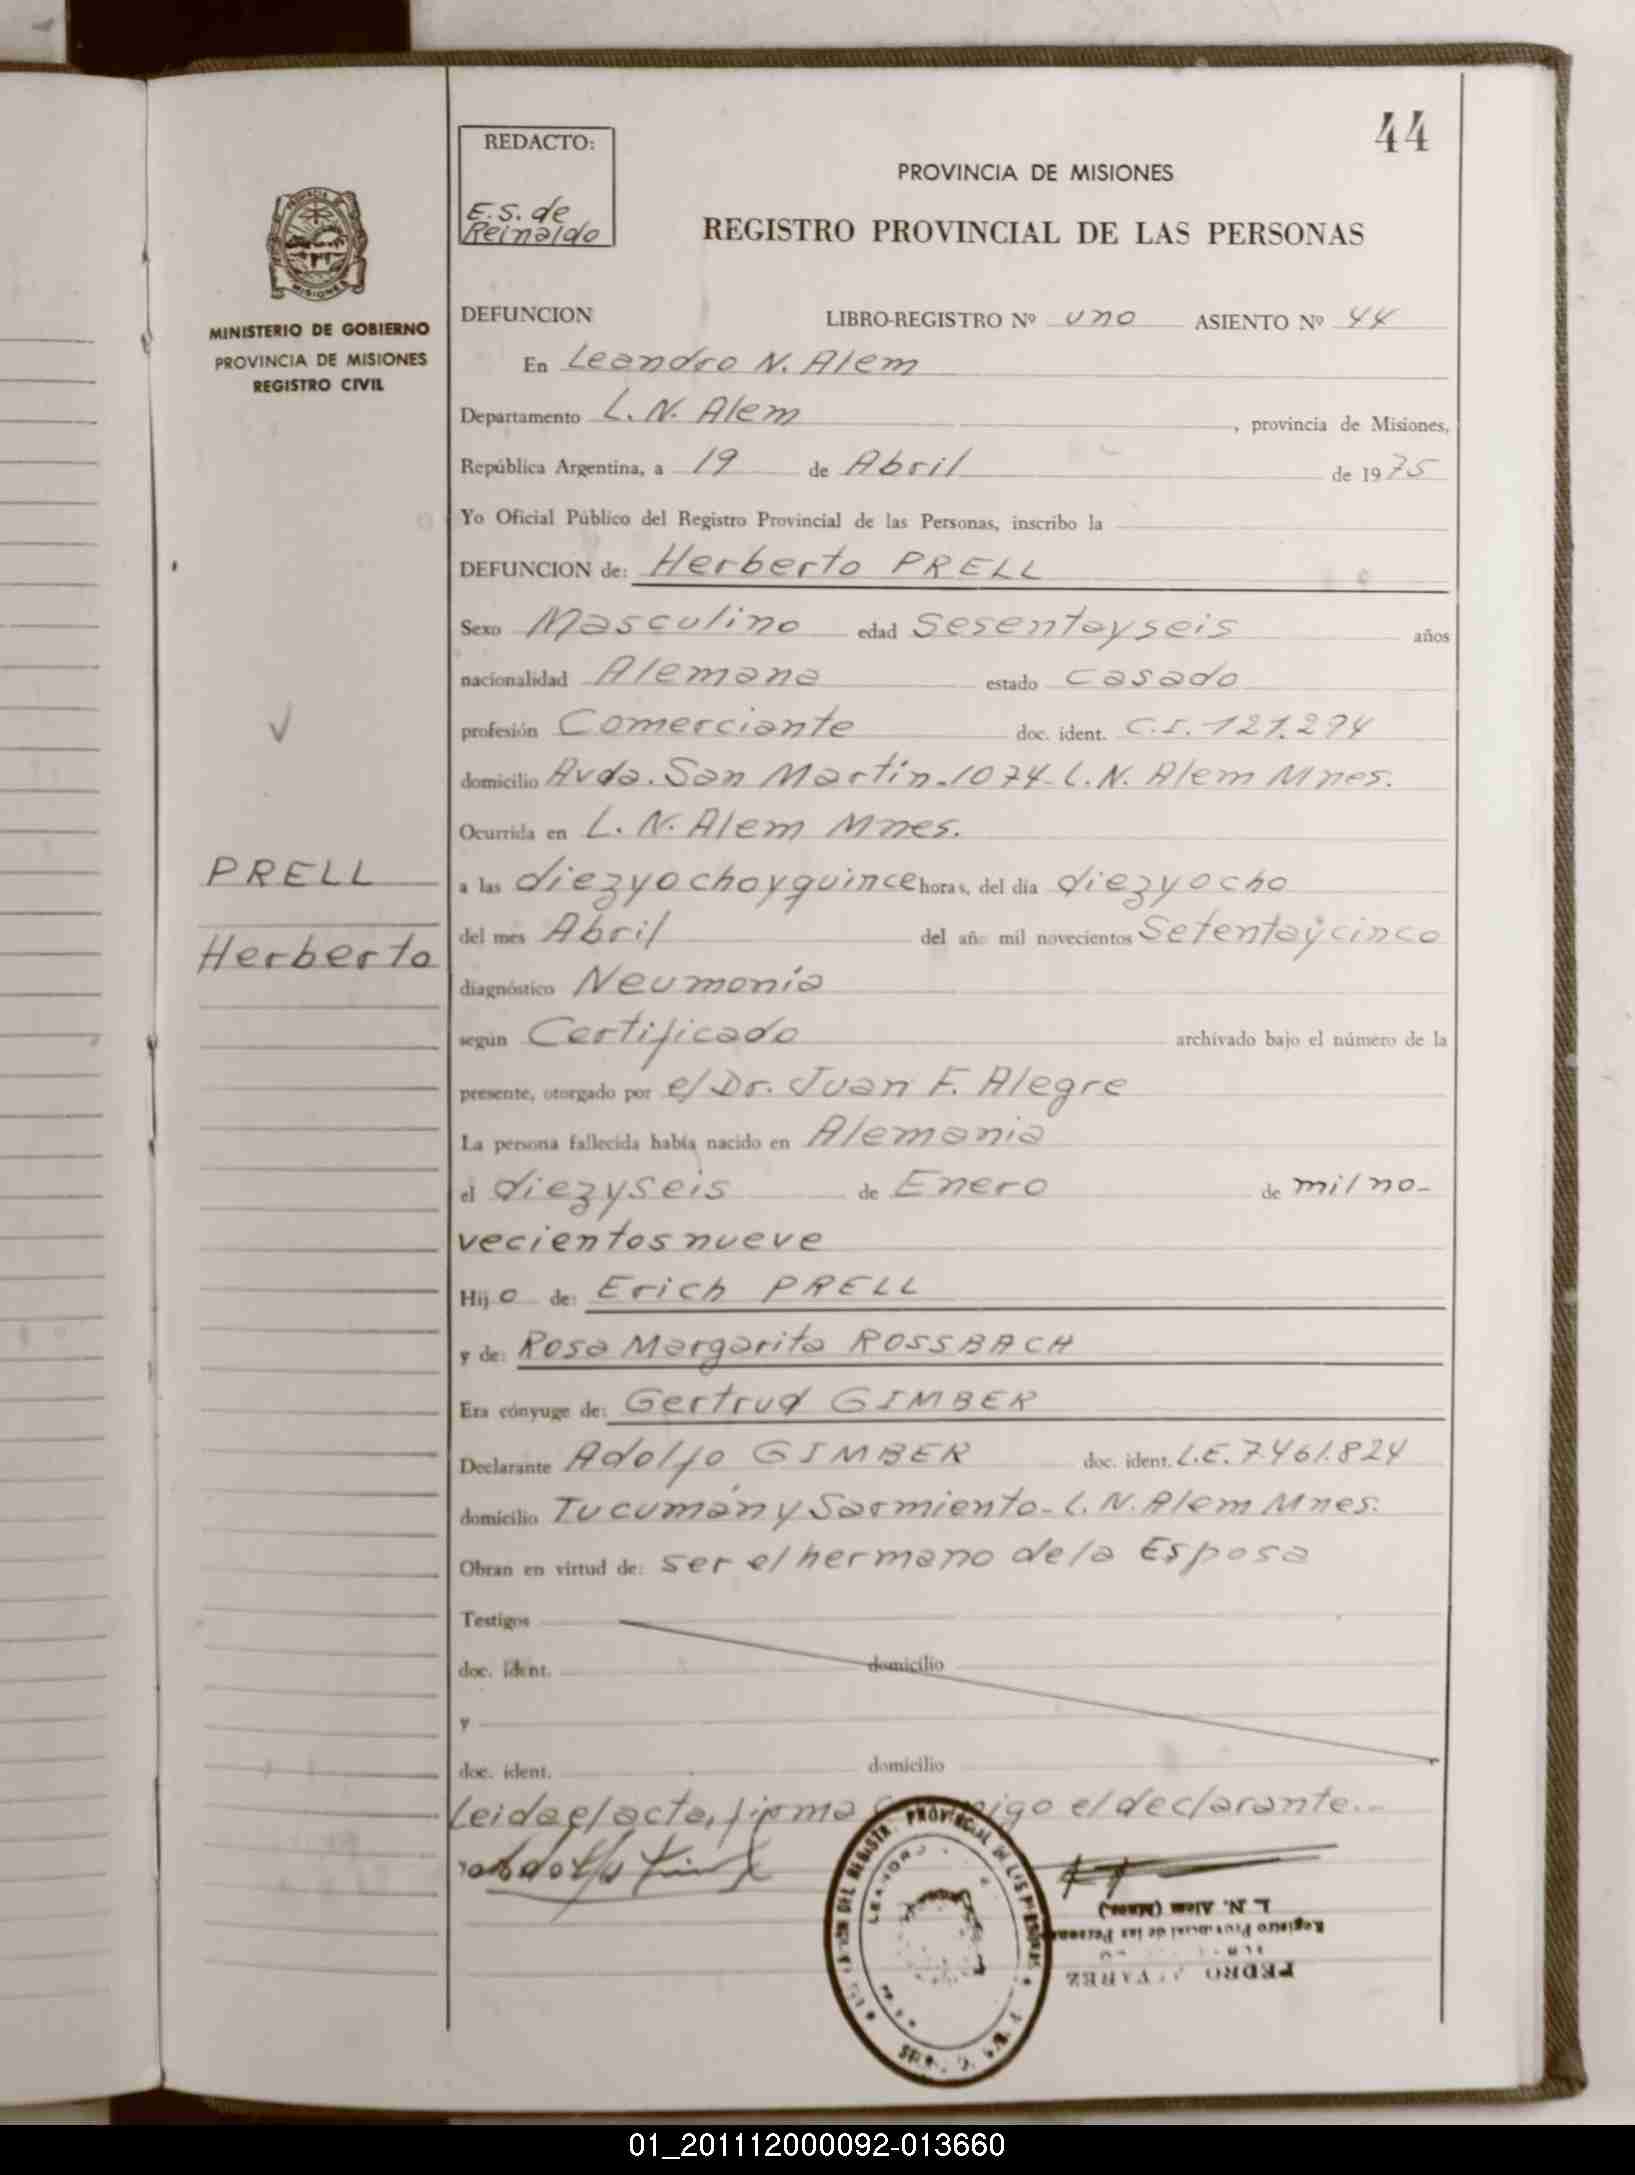 44
REDACTO:
E.S. de
Reinaldo
PROVINCIA DE MISIONES
REGISTRO PROVINCIAL DE LAS PERSONAS
MINISTERIO DE GOBIERNO
PROVINCIA DE MISIONES
REGISTRO CIVIL
DEFUNCION LIBRO-REGISTRO Nº uno ASIENTO Nº 44
En Leandro N. Alem
Departamento L. N. Alem, provincia de Misiones,
República Argentina, a 19 de Abril de 1975
Yo Oficial Público del Registro Provincial de las Personas, inscribo la
DEFUNCION de: Herberto PRELL
Sexo Masculino edad Sesentayseis años
nacionalidad Alemana estado Casado
profesión Comerciante doc. ident. C.I. 121.274
domicilio Avda. San Martín-1074-L.N. Alem Mnes.
Ocurrida en L. N. Alem Mnes.
PRELL
Herberto
a las diezyochoyquince horas, del día diezyocho
del mes Abril del año mil novecientos Setentaycinco
diagnóstico Neumonía
según Certificado archivado bajo el número de la
presente, otorgado por el Dr. Juan F. Alegre
La persona fallecida había nacido en Alemania
el diezyseis de Enero de mil no-
vecientos nueve
Hijo de: Erich PRELL
y de: Rosa Margarita ROSSBACH
Era cónyuge de: Gertrud GIMBER
Declarante Adolfo GIMBER doc. ident. L.E. 7.461.824
domicilio Tucumán y Sarmiento-L.N. Alem Mnes.
Obran en virtud de: ser el hermano de la Esposa
Testigos
doc. ident. domicilio
y
doc. ident. domicilio
Leida el acta, firma el declarante.-
PEDRO ALVAREZ
Registro Provincial de las Personas
L. N. Alem (Mnes)
01_201112000092-013660